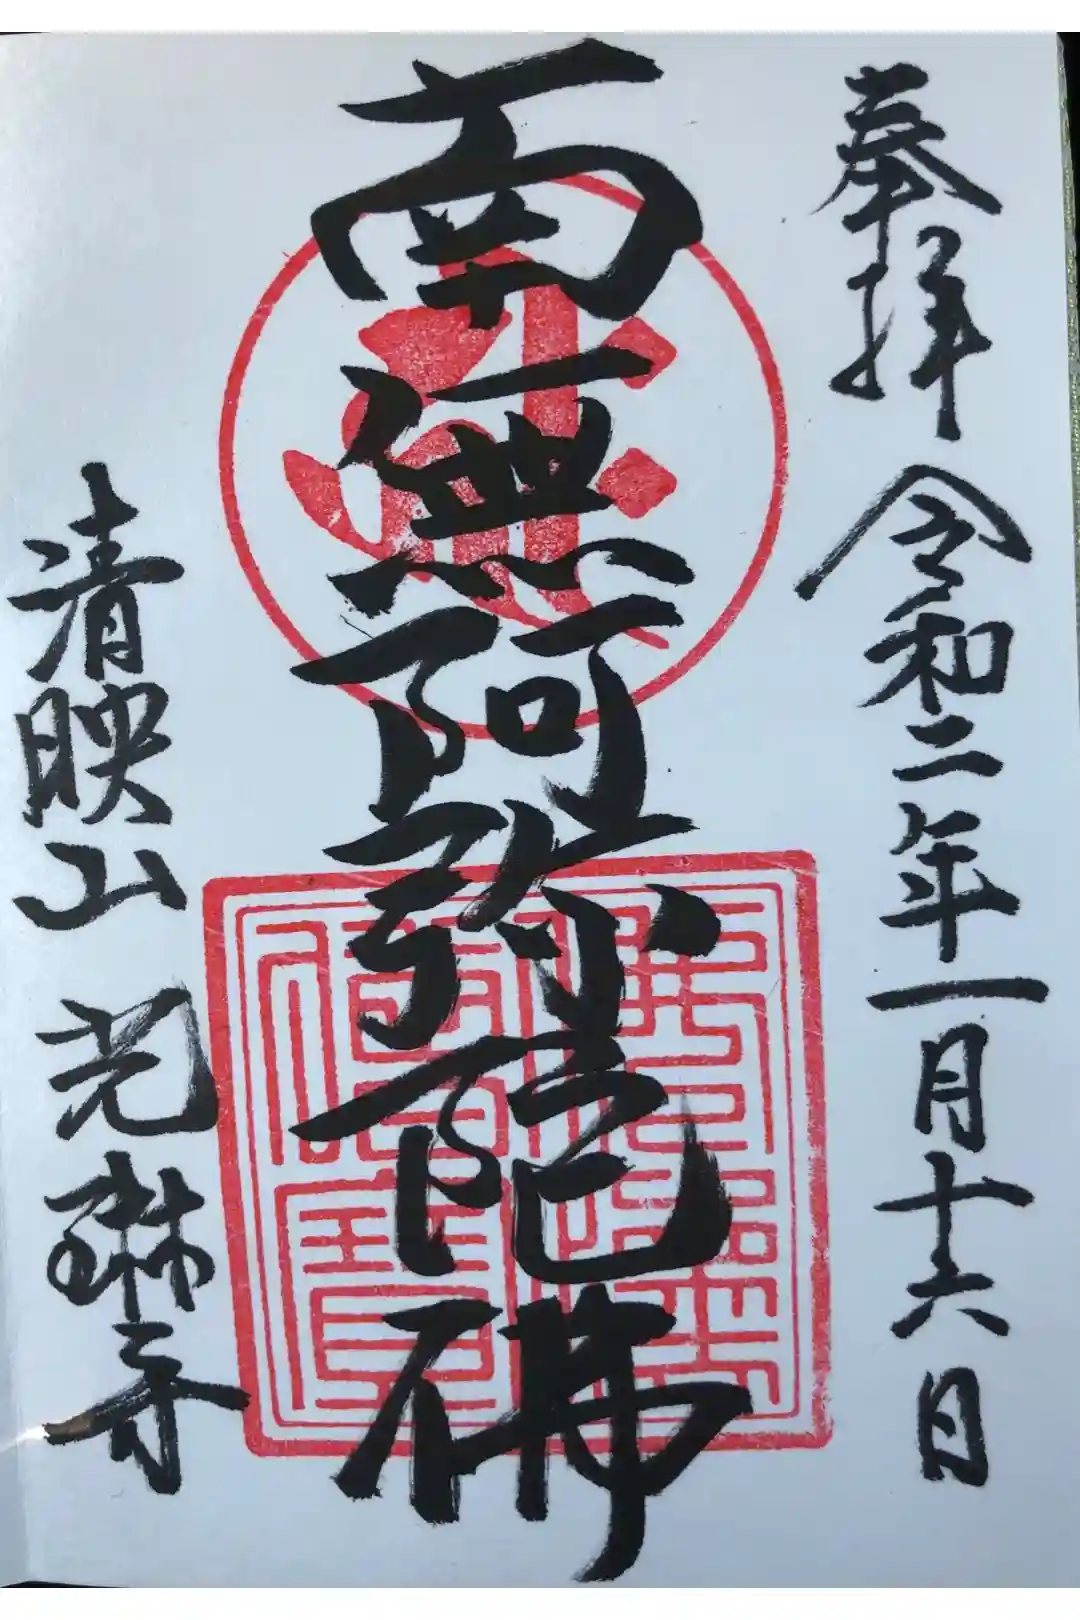 奉拝
令和二年一月十六日
南無阿弥陀佛
清映山 光琳寺